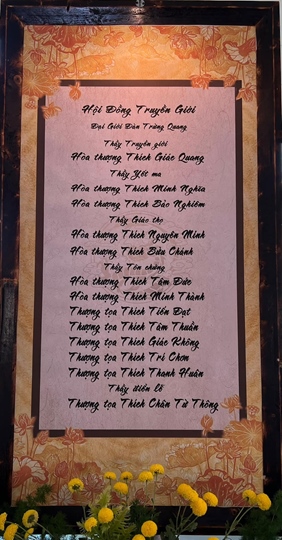 Hội Đồng Truyền Giới
Đại Giới Đàn Trừng Quang
Thầy Truyền giới
Hòa thượng Thích Giác Quang
Thầy Yết ma
Hòa thượng Thích Minh Nghĩa
Hòa thượng Thích Bảo Nghiêm
Thầy Giáo thọ
Hòa thượng Thích Nguyên Minh
Hòa thượng Thích Bửu Chánh
Thầy Tôn chứng
Hòa thượng Thích Tâm Đức
Hòa thượng Thích Minh Thành
Thượng tọa Thích Tiến Đạt
Thượng tọa Thích Tâm Thuần
Thượng tọa Thích Giác Không
Thượng tọa Thích Trí Chơn
Thượng tọa Thích Thanh Huân
Thầy diễn lễ
Thượng tọa Thích Chân Từ Thông